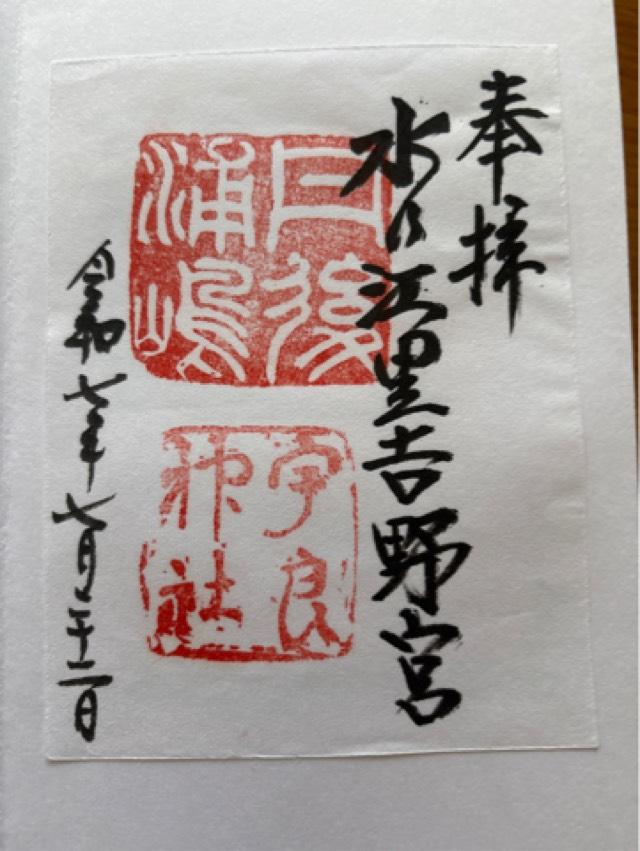 奉拝
水乃江里吉野宮
丹後
浦嶋
宇良
神社
令和七年七月二十二日